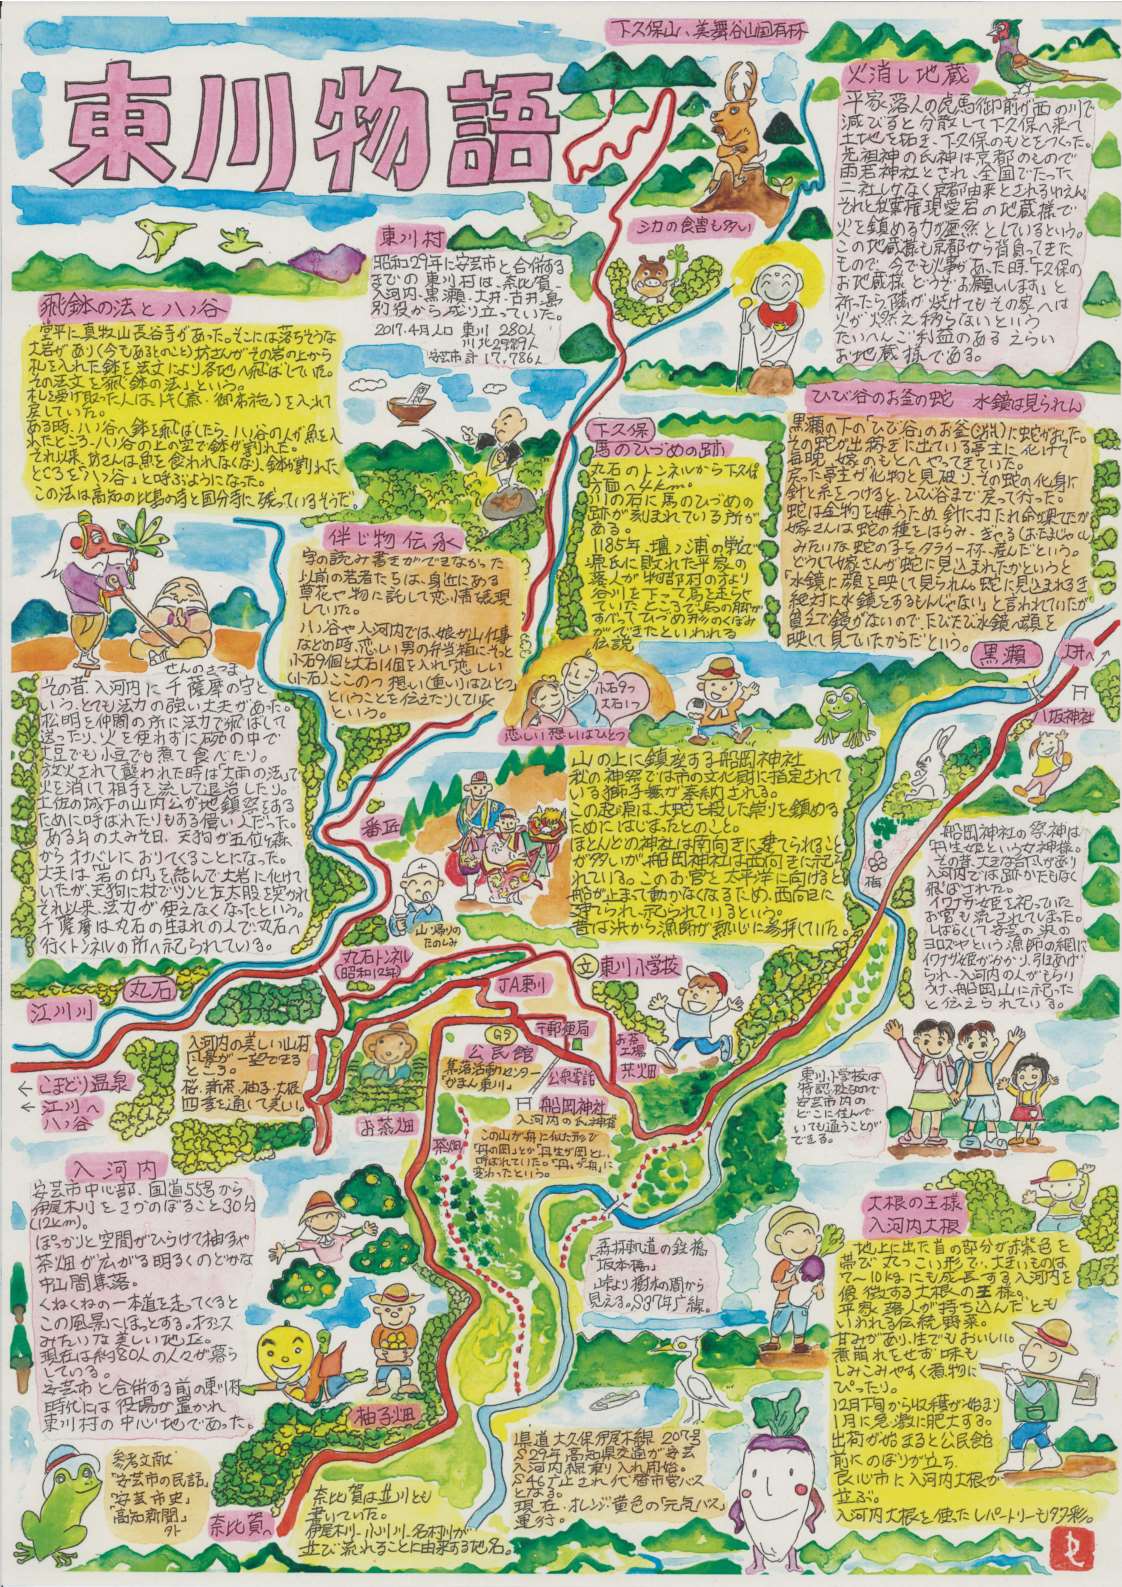 東川物語
下久保山、美舞谷山国有林
火消し地蔵
平家落人の虎馬御前が西の川で
滅びると分散して下久保へ来て
土地を拓き、下久保のもとをつくった。
元祖神の氏神は京都のもので
雨若神社とされ、全国でたった
二社しかなく京都由来とされるゆえん。
それと秋葉権現愛宕の地蔵様で
火を鎮める力が歴然としているという。
この地蔵様も京都から背負ってきた
もので今でも火事があった時「下久保の
お地蔵様、どうぞお願いします」と
祈ったら隣が焼けてもその家へは
火が燃え移らないという
たいへんご利益のあるえらい
お地蔵様である。
シカの食害も多い
東川村
昭和29年に安芸市と合併する
までの東川村は、奈比賀、
入河内、黒瀬、大井、古井、島
別役から成り立っていた。
2017.4月人口 東川 280人
安芸市計 17,786人
飛鉢の法と八ッ谷
堂平に真牧山長谷寺があった。そこには落ちそうな
大岩があり(今もあるとのこと)坊さんがその岩の上から
札を入れた鉢を法文により各地へ飛ばしていた。
その法文を「飛鉢の法」という。
札を受け取った人は、トキ(斎・御布施)を入れて
戻していた。
ある時、八ッ谷へ鉢を飛ばしたら、八ッ谷の人が魚を入
れたところ、八ッ谷の上の空で鉢が割れた。
それ以来、坊さんは魚を食われなくなり、鉢が割れた
ところを「八ッ谷」と呼ぶようになった。
この法は高知の比島の寺と国分寺に残っているそうだ。
ひび谷のお釜の蛇 水鏡は見られん
黒瀬の下の「ひび谷」のお釜に蛇がおった。
その蛇が出稼ぎに出ている亭主に化けて
毎晩、嫁のもとへやってきていた。
戻った亭主が化物と見破り、その蛇の化身に
針と糸をつけると、ひび谷まで戻って行った。
蛇は金物を嫌うため、針に打たれ命が果てたが
嫁さんは蛇の種をはらみ、ぎゃる(おたまじゃくし)
みたいな蛇の子をタライ一杯、産んだという。
どうして嫁さんが蛇に見込まれたかというと
「水鏡に顔を映して見られん。蛇に見込まれるき
絶対に水鏡をするもんじゃない」と言われていたが
貧乏で鏡がないので、たびたび水鏡へ顔を
映して見ていたからだという。
下久保
馬のひづめの跡
丸石のトンネルから下久保
方面へ4km。
川の石に馬のひづめの
跡が刻まれている所が
ある。
1185年、壇ノ浦の戦で
源氏に敗れた平家の
落人が物部村の方より
谷川を下って馬を走らせ
ていたところで、馬の脚が
すべってひづめ形のくぼみ
ができたといわれる
伝説
伴じ物伝承
字の読み書きができなかった
以前の若者たちは、身近にある
草花や物に託して恋情を表現
していた。
八ッ谷や入河内では、娘が山仕事
などの時、恋しい男の弁当箱にそっと
小石9個と大石1個を入れ「恋しい
(小石)ここのつ想い(重い)はひとつ」
ということを伝えたりしていた
という。
小石9つ
大石1つ
恋しい想いはひとつ
せんのさつま
その昔、入河内に千薩摩の守と
いう、とても法力の強い太夫があった。
松明を仲間の所に法力で飛ばして
送ったり、火を使わずに碗の中で
大豆でも小豆でも煮て食べたり。
放火されて襲われた時は「大雨の法」で
火を消して相手を流して退治したり。
土佐の城下の山内公が地鎮祭をする
ために呼ばれたりもする偉い人だった。
ある年の大みそ日、天狗が五位ヶ森
からオナバレにおりてくることになった。
太夫は「岩の印」を結んで大岩に化けて
いたが、天狗に杖でツンと左太股を突かれ
それ以来、法力が使えなくなったという。
千薩摩は丸石の生まれの人で、丸石へ
行くトンネルの所へ祀られている。
黒瀬
大井へ
八坂神社
梅
山の上に鎮座する船岡神社
秋の神祭では市の文化財に指定されて
いる獅子舞が奉納される。
この起源は、大蛇を殺した祟りを鎮める
ためにはじまったとのこと。
ほとんどの神社は南向きに建てられること
が多いが、船岡神社は西向きに祀ら
れている。このお宮を太平洋に向けると
船が止まって動かなくなるため、西向きに
建てられ、祀られているという。
昔は浜から漁師が熱心に参拝していた。
船岡神社の祭神は
丹生姫という女神様。
その昔、大きな台風があり
入河内では跡かたもなく
飛ばされた。
イワナガ姫を祀っていた
お宮も流されてしまった。
しばらくして安芸の浜の
ヨロズヤという漁師の網に
イワナガ姫がかかり、引きあげ
られ、入河内の人がもらい
うけ、船岡山に祀った
と伝えられている。
番匠
山帰りの
たのしみ
丸石トンネル
(昭和12年)
丸石
江川川
JA東川
文 東川小学校
〒郵便局
公衆電話
お茶
工場
茶畑
公民館
集落活動センター
「かまん東川」
船岡神社
入河内の氏神様
この山が舟に似た形で
「舟の岡」とか「丹生が岡」とも
呼ばれていた。「丹」が「舟」に
変わったという。
入河内の美しい山村
風景が一望できる
ところ。
桜、新茶、柚子、大根
四季を通して美しい。
お茶畑
茶畑
←こまどり温泉
←江川へ
八ッ谷
東川小学校は
特認校制で
安芸市内の
どこに住んで
いても通うことが
できる。
入河内
安芸市中心部、国道55号から
伊尾木川をさかのぼること30分
(12km)。
ぽっかりと空間がひらけて柚子や
茶畑が広がる明るくのどかな
中山間集落。
くねくねの一本道を走ってくると
この風景にほっとする。オアシス
みたいな美しい地区。
現在は約80人の人々が暮ら
している。
安芸市と合併する前の東川村
時代には役場が置かれ
東川村の中心地であった。
森林軌道の鉄橋
「坂本橋」
峠より樹木の間から
見える。S37年廃線。
大根の王様
入河内大根
地上に出た首の部分が赤紫色を
帯び丸っこい形で、大きいものは
7～10kgにも成長する入河内を
象徴する大根の王様。
平家落人が持ち込んだとも
いわれる伝統野菜。
甘みがあり、生でもおいしい。
煮崩れをせず味も
しみこみやすく煮物に
ぴったり。
12月下旬から収穫が始まり
1月に急激に肥大する。
出荷が始まると公民館
前にのぼりが立ち、
良心市に入河内大根が
並ぶ。
入河内大根を使ったレパートリーも多彩。
柚子畑
県道大久保伊尾木線 207号
S29年高知県交通が安芸
入河内線乗り入れ開始。
S46廃止され、代替市営バス
となる。
現在、オレンジ黄色の「元気バス」
運行。
参考文献
「安芸市の民話」
「安芸市史」
「高知新聞」
外
奈比賀へ
奈比賀は並川とも
書いていた。
伊尾木川、小川川、名村川が
並び流れることに由来する地名。